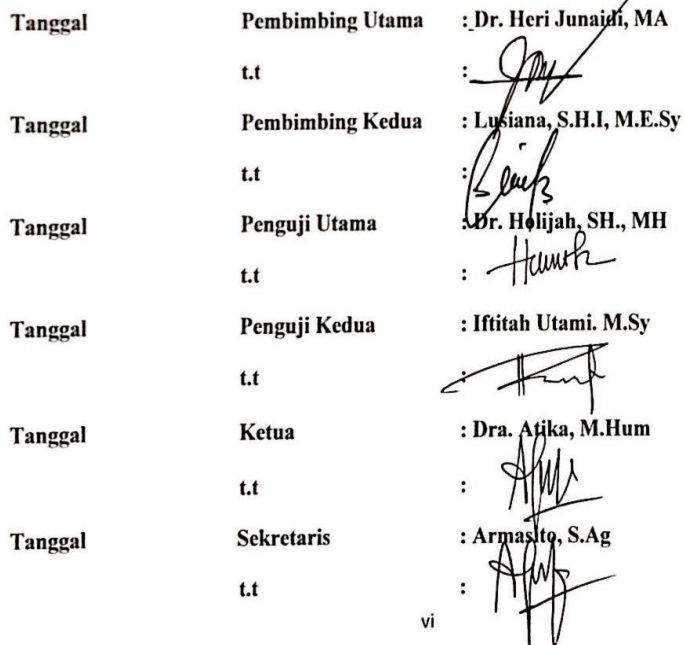 Tanggal Pembimbing Utama : Dr. Heri Junaidi, MA
t.t :
Tanggal Pembimbing Kedua : Lusiana, S.H.I, M.E.Sy
t.t :
Tanggal Penguji Utama : Dr. Holijah, SH., MH
t.t :
Tanggal Penguji Kedua : Iftitah Utami. M.Sy
t.t :
Tanggal Ketua : Dra. Atika, M.Hum
t.t :
Tanggal Sekretaris : Armasito, S.Ag
t.t :
vi